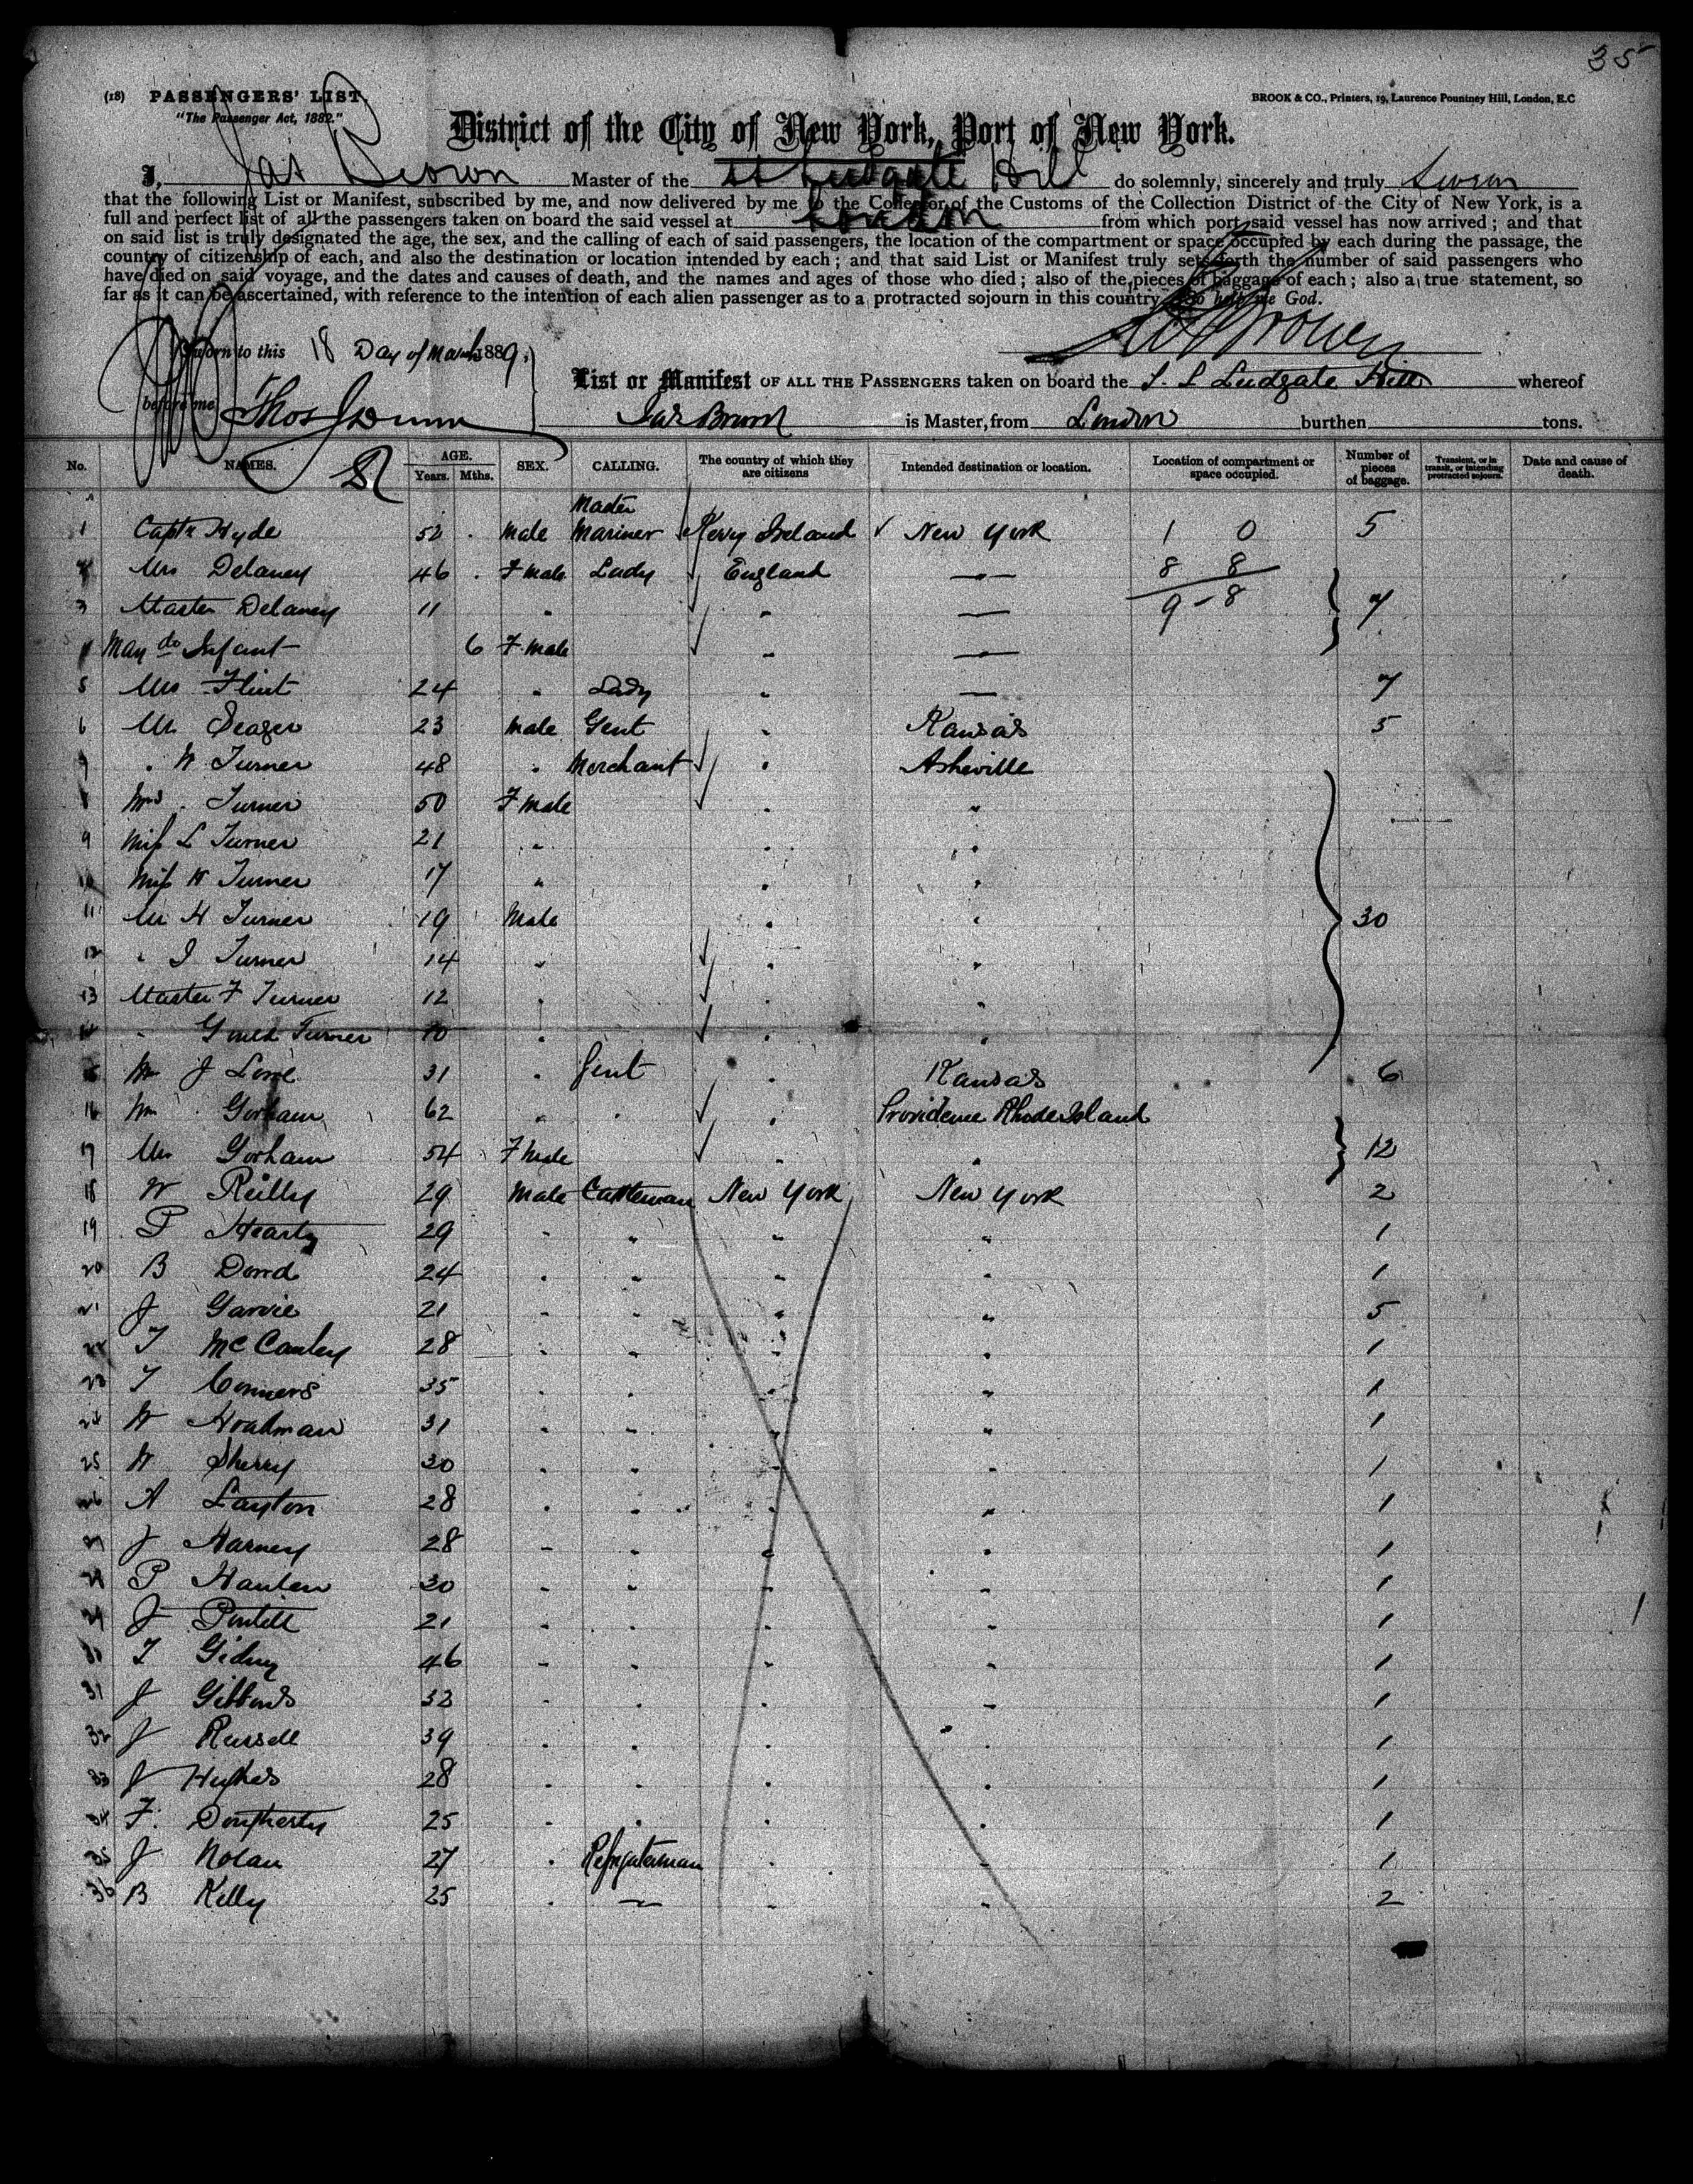 35
(18) PASSENGERS' LIST.
BROOK & CO., Printers, 19, Laurence Pountney Hill, London, E.C
"The Passenger Act, 1882."
District of the City of New York, Port of New York.
I, Jas Brown Master of the SS Ludgate Hill do solemnly, sincerely and truly swear
that the following List or Manifest, subscribed by me, and now delivered by me to the Collector of the Customs of the Collection District of the City of New York, is a
full and perfect list of all the passengers taken on board the said vessel at London from which port said vessel has now arrived; and that
on said list is truly designated the age, the sex, and the calling of each of said passengers, the location of the compartment or space occupied by each during the passage, the
country of citizenship of each, and also the destination or location intended by each; and that said List or Manifest truly sets forth the number of said passengers who
have died on said voyage, and the dates and causes of death, and the names and ages of those who died; also of the pieces of baggage of each; also a true statement, so
far as it can be ascertained, with reference to the intention of each alien passenger as to a protracted sojourn in this country. So help me God.
Jas Brown
Sworn to this 18 Day of March 1889.
List or Manifest OF ALL THE PASSENGERS taken on board the S. S Ludgate Hill whereof
before me Thos J Dunn
Jas Brown is Master, from London burthen tons.
No. NAMES. AGE. Years. Mths. SEX. CALLING. The country of which they are citizens Intended destination or location. Location of compartment or space occupied. Number of pieces of baggage. Transient, or in transit, or intending protracted sojourn. Date and cause of death.
1 Captn Hyde 52 Male Master Mariner Kerry Ireland New York 1 0 5
Mrs Delaney 46 Fmale Lady England — 8 8
3 Master Delaney 11 " " — 9-8 7
May do Infant 6 Fmale " —
5 Mrs Flint 24 " Lady " — 7
6 Mr Seager 23 Male Gent " Kansas 5
7 " W Turner 48 " Merchant " Asheville
8 Mrs Turner 50 Fmale " "
9 Miss L Turner 21 " " "
10 Miss H Turner 17 " " "
11 Mr H Turner 19 Male " " 30
12 " J Turner 14 " " "
13 Master F Turner 12 " " "
14 " Turner 10 " " "
15 Mr J Love 31 " Gent " Kansas 6
16 Mr Gorham 62 " " " Providence Rhode Island
17 Mrs Gorham 54 Fmale " " 12
18 W Reilly 29 Male Cattleman New York New York 2
19 P Hearty 29 " " " " 1
20 B Dowd 24 " " " " 1
21 J Garvie 21 " " " " 5
22 T McCauley 28 " " " " 1
23 T Conners 35 " " " " 1
24 W Hoadman 31 " " " " 1
25 W Sherry 30 " " " " 1
26 A Layton 28 " " " " 1
27 J Harney 28 " " " " 1
28 P Hanlen 30 " " " " 1
29 J 21 " " " " 1
30 T Gidney 46 " " " " 1
31 J Gibbons 32 " " " " 1
32 J Russell 39 " " " " 1
33 J Hughes 28 " " " " 1
34 F. Dougherty 25 " " " " 1
35 J Nolan 27 " " " 1
36 B Kelly 25 " — " " 2